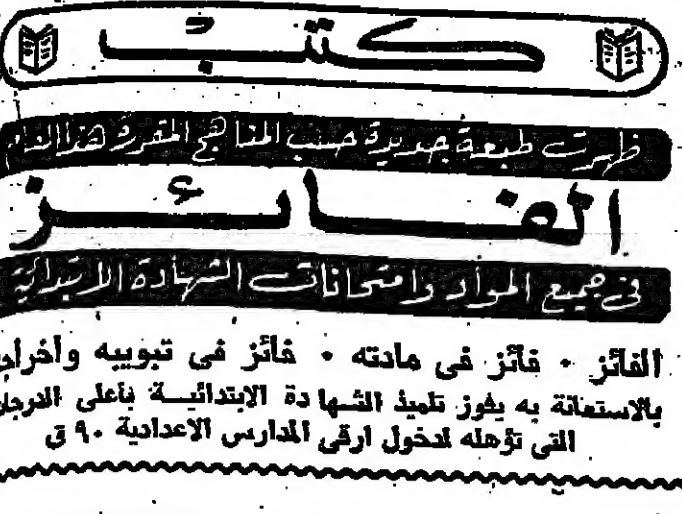 كتب
ظهرت طبعة جديدة حسب المناهج المقررة هذا العام
الفائز
فى جميع المواد وامتحانات الشهادة الابتدائية
الفائز • فائز فى مادته • فائز فى تبويبه واخراج
بالاستعانة به يفوز تلميذ الشهادة الابتدائية بأعلى الدرجا
التى تؤهله لدخول ارقى المدارس الاعدادية ٩٠ ق